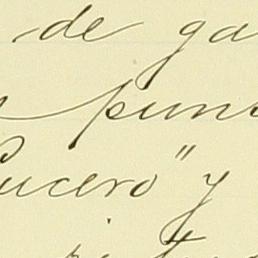 de ga
pun
ucero" y